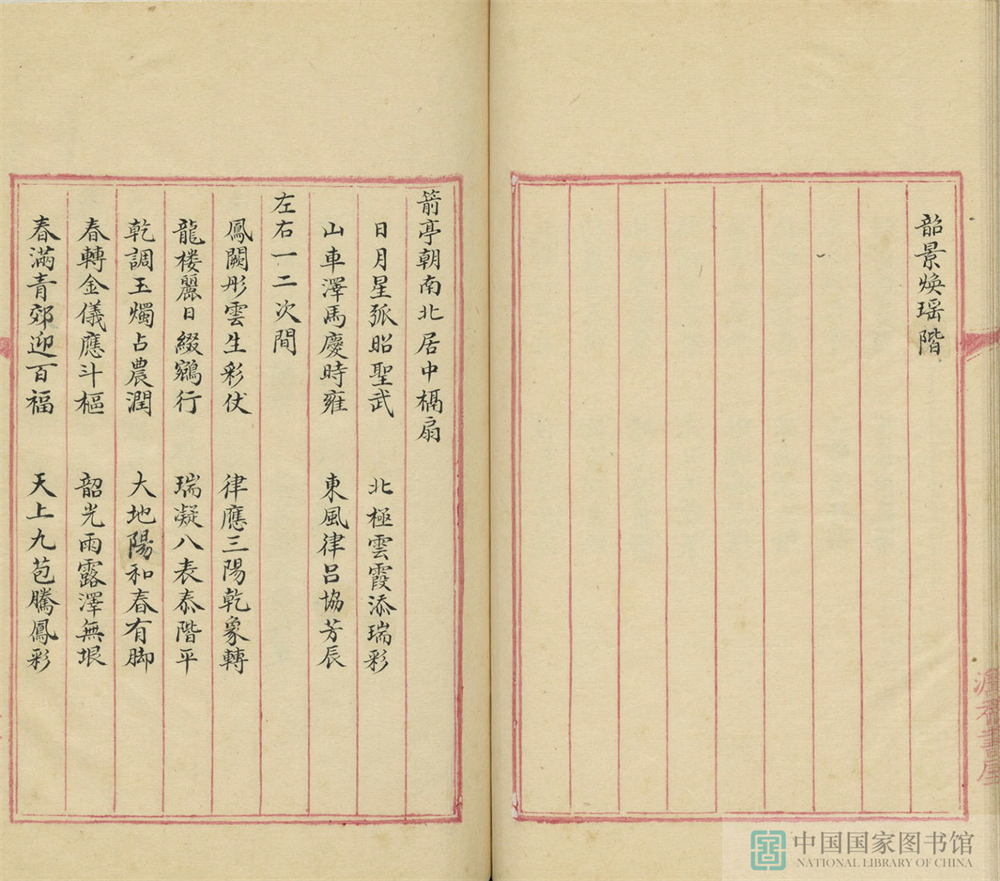 韶景煥瑤階
箭亭朝南北居中槅扇
日月星弧昭聖武　北極雲霞添瑞彩
山車澤馬慶時雍　東風律呂協芳辰
左右一二次間
鳳闕彤雲生彩仗　律應三陽乾象轉
龍楼麗日綴鵷行　瑞凝八表泰階平
乾調玉燭占農潤　大地陽和春有脚
春轉金儀應斗樞　韶光雨露澤無垠
春滿青郊迎百福　天上九苞騰鳳彩
中国国家图书馆
NATIONAL LIBRARY OF CHINA